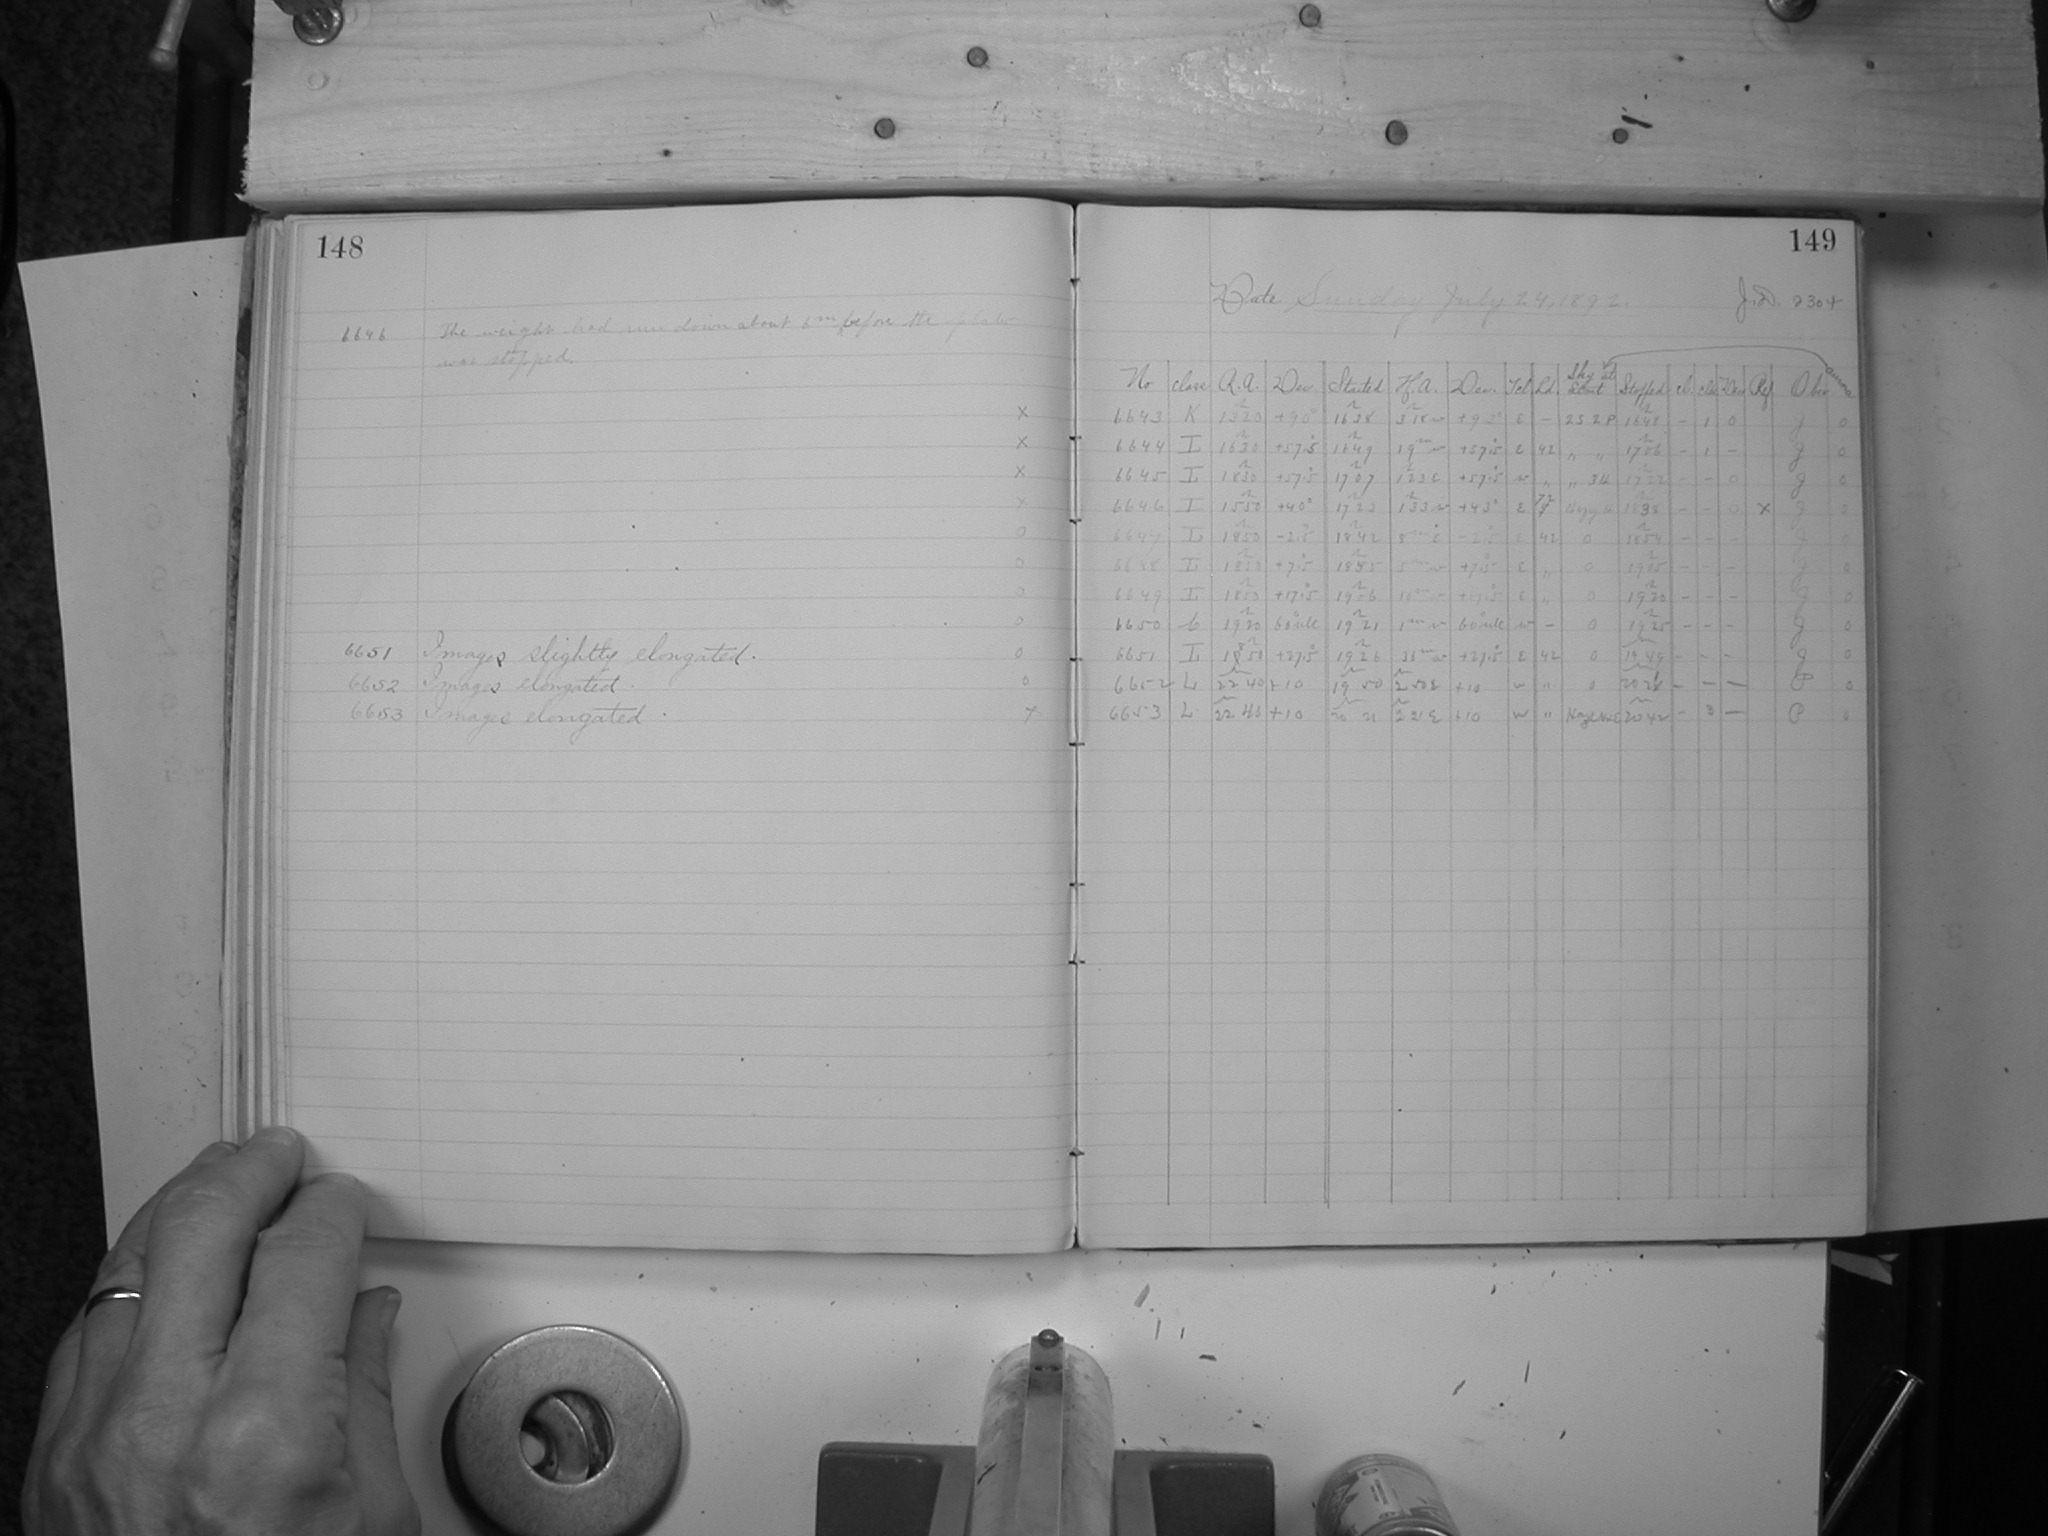 148
6646 The weight had run down about 6m before the plate
was stopped.
x
x
x
x
o
o
o
o
6651 Images slightly elongated. o
6652 Images elongated. o
6653 Images elongated. x
149
Date Sunday July 24, 1892. J.D. 2304
No class R.A. Dec. Started H.A. Dec. Tel. Sky at Start Stopped Ref Obs. Aurora
6643 K 1320 +90° 1638 318w E - 2S2P 1648 - 1 0 J 0
6644 I 1630 +57.5 1649 19m w +57.5 E 42 " " 1706 - 1 - J 0
6645 I 1830 +57.5 1707 123E +57.5 w " " 1722 - - 0 J 0
6646 I 1550 +40° 1723 133w +43° E 1838 - - 0 x J 0
6647 I 1850 -2.5 1842 8m E -2.5 E 42 0 1854 - - - J 0
6648 I 1850 +7.5 1855 5m w +7.5 E " 0 1905 - - - J 0
6649 I 1850 +17.5 1906 16m w +17.5 E " 0 1920 - - - J 0
6650 1920 1921 1m w w - 0 1925 - - - J 0
6651 I 1850 +27.5 1926 36m w +27.5 E 42 0 1949 - - - J 0
6652 L 2240 +10 19 50 2 50E +10 w " 0 - - - P 0
6653 L 2240 +10 20 21 +10 w " 2042 - 3 - P 0